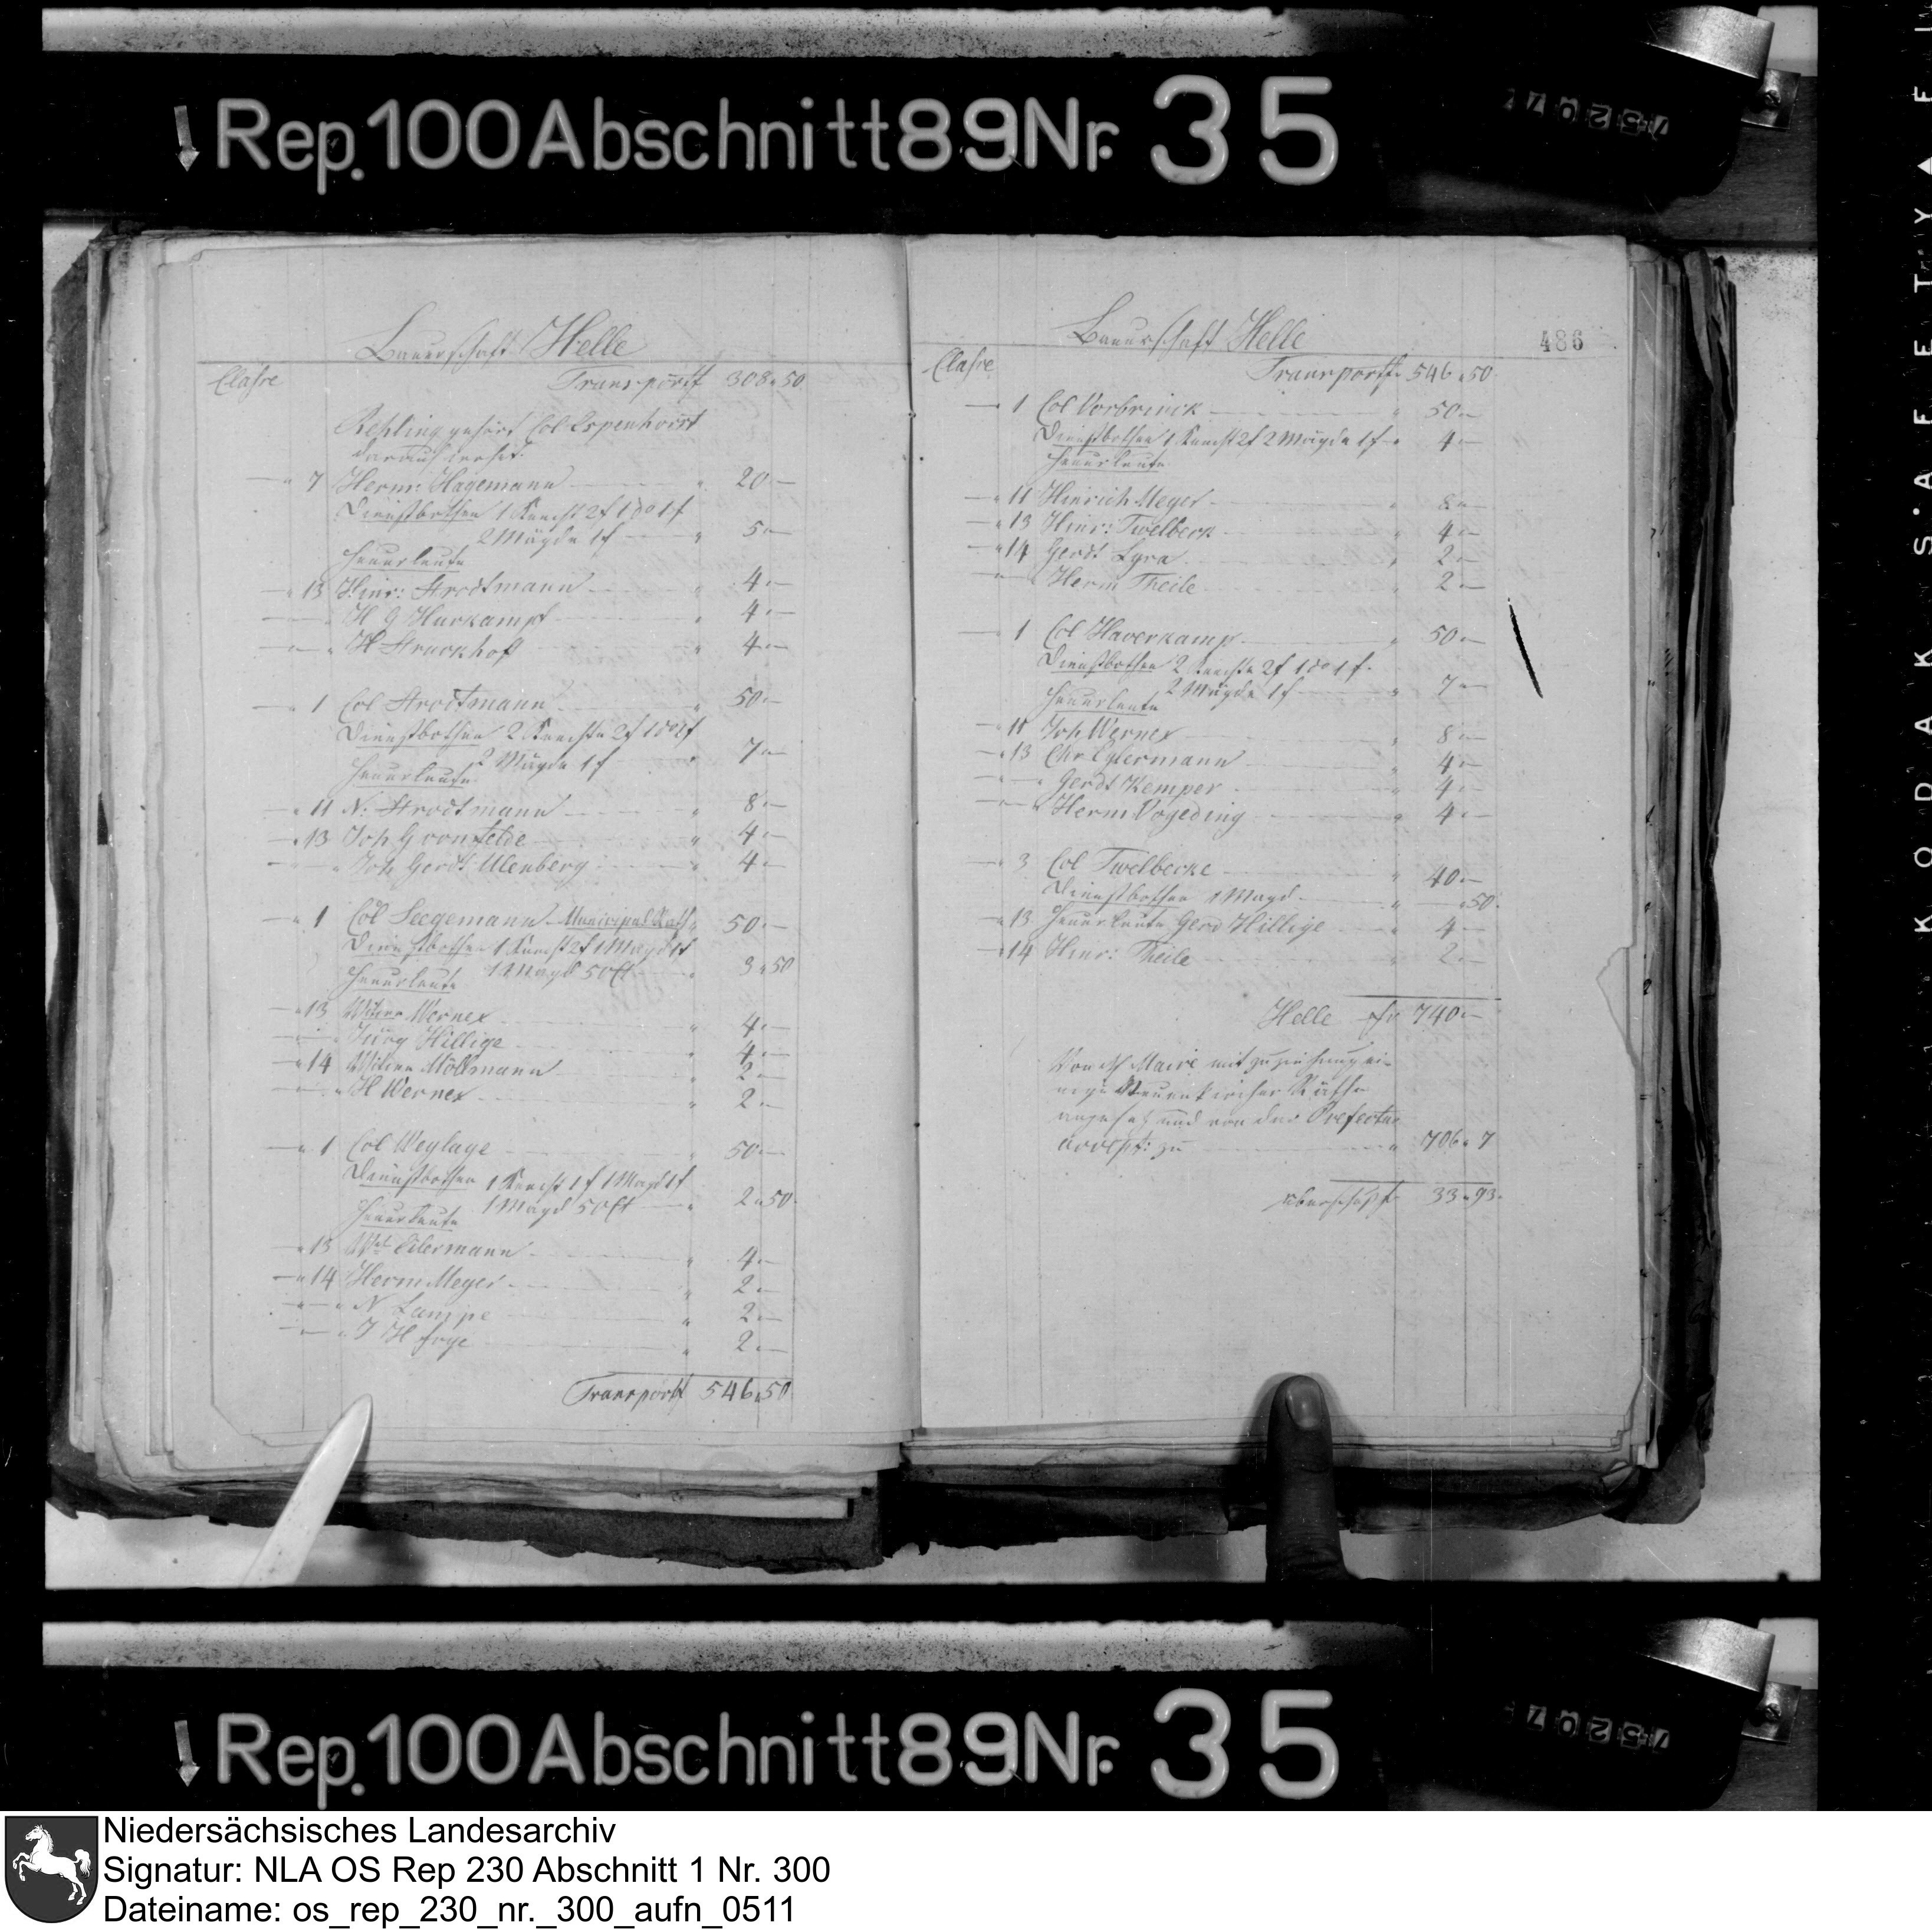 Rep. 100 Abschnitt 89 Nr. 35
Bauerschaft Helle
Classe Transport 308 " 50
Rehling gehört Col Espenhorst
darauf
7 Herm: Hagemann 20 "—
Dienstbothen 1 Knecht 2 f 1 do 1 f
2 Mägde 1 f 5 "—
Heuerleute
13 Hinr: Strodtmann 4 "—
H G Harkampf 4 "—
H Struckhof 4 "—
1 Col Strodtmann 50 "—
Dienstbothen 2 Knechte 2 f 1 do 1 f
2 Mägde 1 f 7 "—
Heuerleute
11 N: Strodtmann 8 "—
13 Joh G vom felde 4 "—
Joh Gerdt Ulenberg 4 "—
1 Col Seegemann Municipal Rath 50 "—
Dienstbothen 1 Knecht 2 f 1 Magd 1 f
1 Magd 50 Ct 3 " 50
Heuerleute
13 Witwe Werner 4 "—
Jürg Hillige 4 "—
14 Witwe Möllmann 2 "—
H Werner 2 "—
1 Col Weglage 50 "—
Dienstbothen 1 Knecht 1 f 1 Magd 1 f
1 Magd 50 Ct 2 " 50
Heuerleute
13 Wwe Eilermann 4 "—
14 Herm Meyer 2 "—
N Lampe 2 "—
J H Frye 2 "—
Transport 546 " 50
Bauerschaft Helle
486
Classe Transport 546 " 50
1 Col Vorbrinck 50 "—
Dienstbothen 1 Knecht 2 f 2 Mägde 1 f 4 "—
Heuerleute
11 Hinrich Meyer 8 "—
13 Hinr: Twelbeck 4 "—
14 Gerdt Lyra 2 "—
Herm Theile 2 "—
1 Col Haverkamp 50 "—
Dienstbothen 2 Knechte 2 f 1 do 1 f
2 Mägde 1 f 7 "—
Heuerleute
11 Joh Werner 8 "—
13 Chr Eylermann 4 "—
Gerdt Kemper 4 "—
Herm Vogeding 4 "—
3 Col Twelbecke 40 "—
Dienstbothen 1 Magd — " 50
13 Heuerleute Gerd Hillige 4 "—
14 Hinr: Theile 2 "—
Helle fr 740 "—
Von dH Maire mit zuziehung ei-
nige Neuenkircher Räthe
angesetz und von der Prefectur
accept: zu 706 " 7
überschuss 33 " 93
Rep. 100 Abschnitt 89 Nr. 35
KODAK SAFETY
Niedersächsisches Landesarchiv
Signatur: NLA OS Rep 230 Abschnitt 1 Nr. 300
Dateiname: os_rep_230_nr._300_aufn_0511